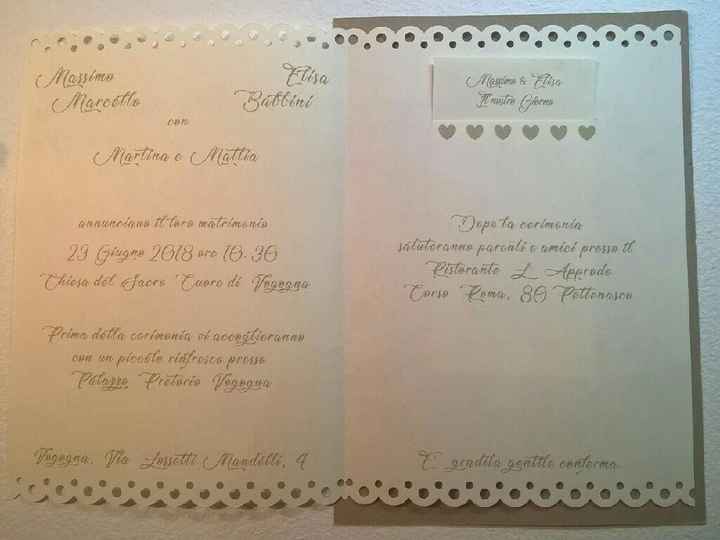 Massimo Elisa
Marcello Bubbini
con
Martina e Mattia
annunciano il loro matrimonio
29 Giugno 2018 ore 10.30
Chiesa del Sacro Cuore di Vogogna
Prima della cerimonia vi accoglieranno
con un piccolo rinfresco presso
Palazzo Pretorio Vogogna
Vogogna, Via Lossetti Mandelli, 4
Massimo & Elisa
Il nostro Giorno
Dopo la cerimonia
saluteranno parenti e amici presso il
Ristorante L Approdo
Corso Roma, 80 Pettenasco
E gradita gentile conferma